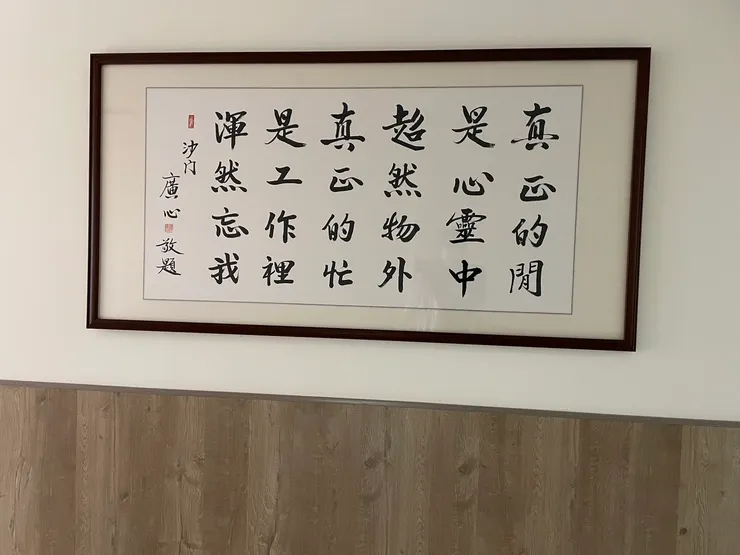 真正的閒
是心靈中
超然物外
真正的忙
是工作裡
渾然忘我
沙门廣心敬題